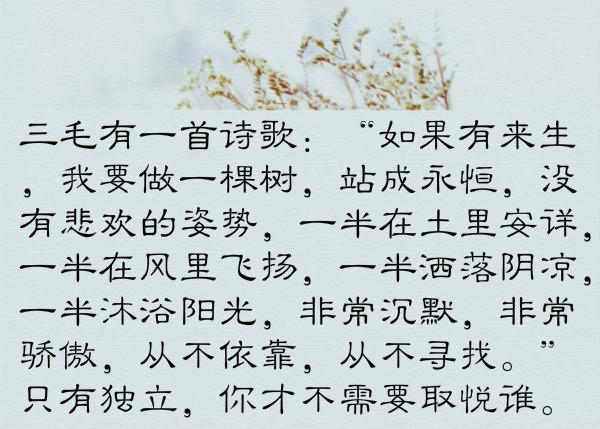 三毛有一首诗歌：“如果有来生
，我要做一棵树，站成永恒，没
有悲欢的姿势，一半在土里安详，
一半在风里飞扬，一半洒落阴凉，
一半沐浴阳光，非常沉默，非常
骄傲，从不依靠，从不寻找。”
只有独立，你才不需要取悦谁。